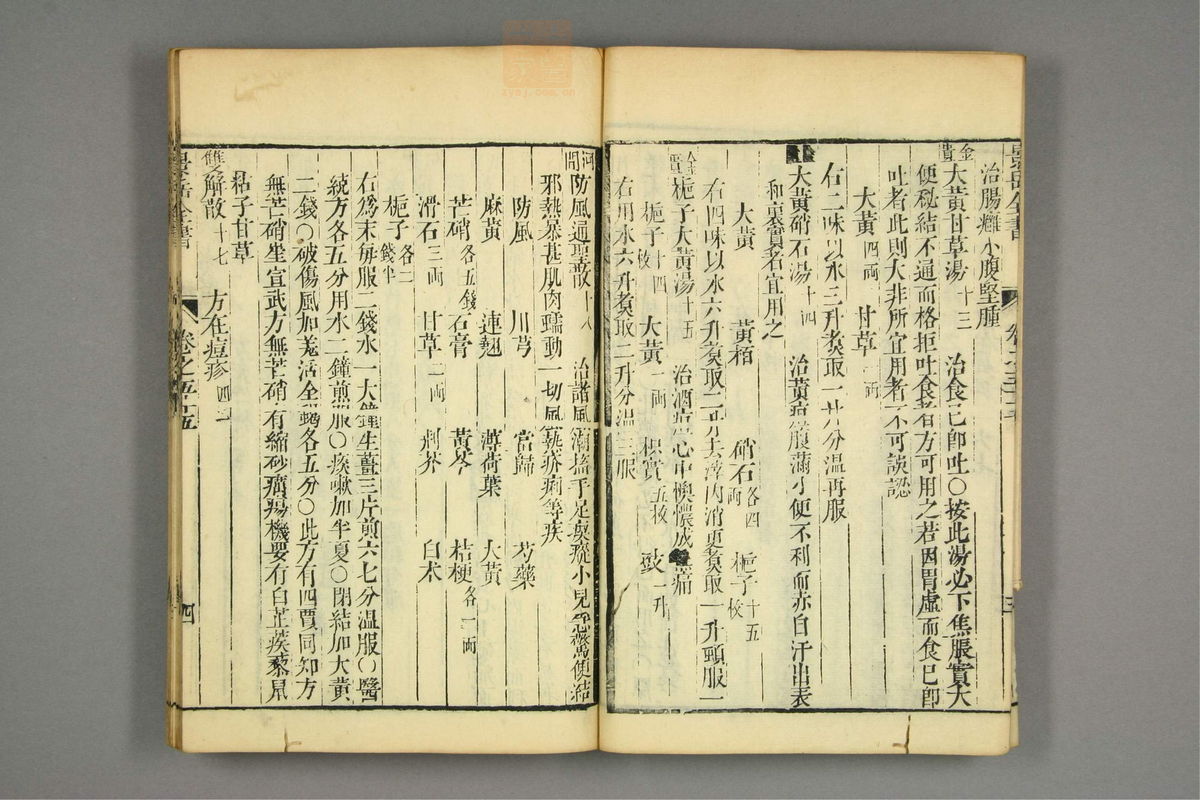 治腸癰小腹堅腫
金匱大黃甘草湯十三 治食已卽吐○按此湯必下焦脹實大
便秘結不通而格拒吐食者方可用之若因胃虛而食已卽
吐者此則大非所宜用者不可誤認
大黃四兩 甘草一兩
右二味以水三升煑取一升分溫再服
大黃硝石湯十四 治黃疸腹滿小便不利而赤自汗出表
和裏實者宜用之
大黃 黃栢 硝石各四兩 梔子十五枚
右四味以水六升煑取二升去滓内消更煑取一升頓服一
金匱梔子大黃湯十五 治酒疸心中懊憹或痛
梔子十四枚 大黃一兩 枳實五枚 豉一升
右用水六升煑取二升分溫三服
景岳全書 卷之五十五 四
河間防風通聖散十六 治諸風瘈瘲手足小兒急驚便結
邪熱暴甚肌肉蠕動一切風等疾
防風 川芎 當歸 芍藥
麻黃 連翹 薄荷葉 大黃
芒硝各五錢 石膏 黃芩 桔梗各一兩
滑石三兩 甘草二兩 荆芥 白朮
梔子各二錢半
右爲末每服二錢水一大鍾生薑三片煎六七分溫服○醫
統方各五分用水二鐘煎服○痰嗽加半夏○閉結加大黃
二錢○破傷風加羗活全蝎各五分○此方有四賈同知方
無芒硝崔宣武方無芒硝有縮砂瘍機要有白芷蒺藜鼠
粘子甘草
雙解散十七 方在痘疹四二